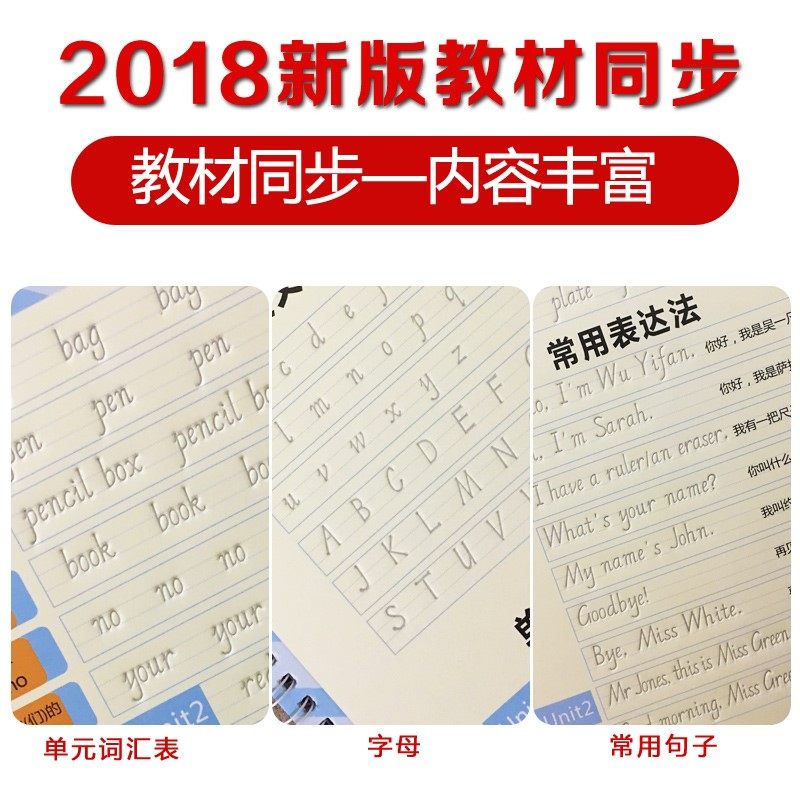 2018新版教材同步
教材同步—内容丰富
bag bag
pen pen
pen
pencil box pencil
book book
no no no
your your
Unit2
单元词汇表
c d e
l m n o p q
u v w x y z
A B C D E F
J K L M N
S T U V
字母
plate
常用表达法
I'm Wu Yifan. 你好，我是吴一
I'm Sarah. 你好，我是萨
I have a ruler/an eraser. 我有一把尺
What's your name? 你叫什么
My name's John. 我叫约
Goodbye! 再见
Bye, Miss White.
Mr Jones, this is Miss Green
morning, Miss
Unit2
常用句子